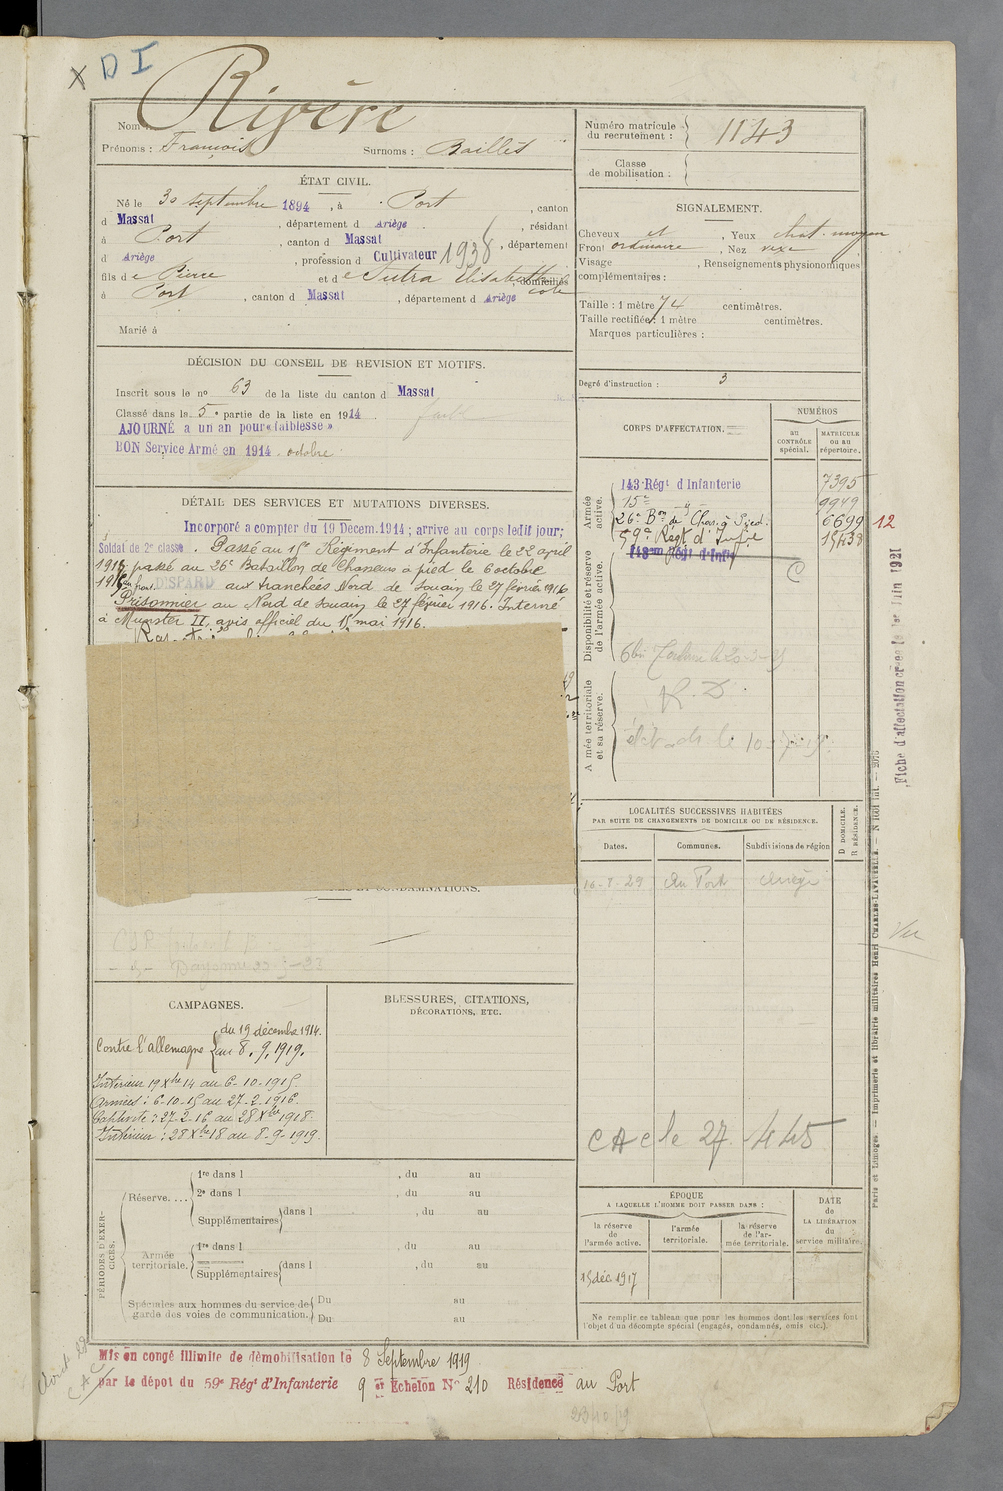 X D I
Rivère
Nom :
Prénoms : François Surnoms : Baillés
Numéro matricule du recrutement : 1143
Classe de mobilisation :
ÉTAT CIVIL.
Né le 30 septembre 1894, à Port, canton
d Massat, département d Ariège, résidant
à Port, canton d Massat, département
d Ariège, profession d Cultivateur 1938
fils de Pierre et de Sutra Elisabeth domiciliés
à Port, canton d Massat, département d Ariège
Marié à
SIGNALEMENT.
Cheveux et, Yeux chat. moyen
Front ordinaire, Nez vexe
Visage, Renseignements physionomiques
complémentaires :
Taille : 1 mètre 74 centimètres.
Taille rectifiée : 1 mètre centimètres.
Marques particulières :
Degré d'instruction : 3
DÉCISION DU CONSEIL DE REVISION ET MOTIFS.
Inscrit sous le nº 63 de la liste du canton d Massat
Classé dans la 5e partie de la liste en 1914
AJOURNÉ à un an pour « faiblesse »
BON Service Armé en 1914. octobre
DÉTAIL DES SERVICES ET MUTATIONS DIVERSES.
Incorporé a compter du 19 Décem.1914; arrivé au corps ledit jour;
Soldat de 2e classe. Passé au 15e Régiment d'Infanterie le 22 avril
1915, passé au 26e Bataillon de Chasseurs à pied le 6 octobre
1915. DISPARU aux tranchées Nord de Souain le 27 février 1916.
Prisonnier au Nord de Souain le 27 février 1916. Interné
à Munster II, avis officiel du 15 mai 1916.
CORPS D'AFFECTATION.
NUMÉROS
au CONTRÔLE spécial.
MATRICULE ou au répertoire.
Armée active.
143 Régt d Infanterie 7395
15e 9949
26e Bon de Chas. à Pied. 6699 12
59e Régt d'Infie 15438
Disponibilité et réserve de l'armée active.
143me Régt d'Infie C
Armée territoriale et sa réserve.
R. D.
Fiche d'affectation créée le 1er Juin 1921
LOCALITÉS SUCCESSIVES HABITÉES
PAR SUITE DE CHANGEMENTS DE DOMICILE OU DE RÉSIDENCE.
Dates. Communes. Subdivisions de région
D DOMICILE.
R RÉSIDENCE.
Au Port Ariège
CONDAMNATIONS.
Vu
CAMPAGNES.
Contre l'allemagne du 19 décembre 1914.
au 8.9.1919.
Intérieur 19 Xbre 14 au 6-10-1915.
Armées : 6-10-15 au 27-2-1916.
Captivité : 27-2-16 au 28 Xbre 1918.
Intérieur : 28 Xbre 18 au 8-9-1919.
BLESSURES, CITATIONS,
DÉCORATIONS, ETC.
CAC le 27. 4 45
PÉRIODES D'EXERCICES.
Réserve....
1re dans l , du au
2e dans l , du au
Supplémentaires dans l , du au
, du au
Armée territoriale.
1re dans l , du au
Supplémentaires dans l , du au
au
Spéciales aux hommes du service de garde des voies de communication.
Du au
Du au
ÉPOQUE
A LAQUELLE L'HOMME DOIT PASSER DANS :
la réserve de l'armée active.
l'armée territoriale.
la réserve de l'armée territoriale.
DATE de LA LIBÉRATION du service militaire.
15 déc. 1917
Ne remplir ce tableau que pour les hommes dont les services font
l'objet d'un décompte spécial (engagés, condamnés, omis etc.).
Paris et Limoges. — Imprimerie et librairie militaires Henri CHARLES-LAVAUZELLE.
Mis en congé illimité de démobilisation le 8 Septembre 1919
par le dépôt du 59e Régt d'Infanterie 9 er Echelon Nº 210 Résidence au Port
CAC